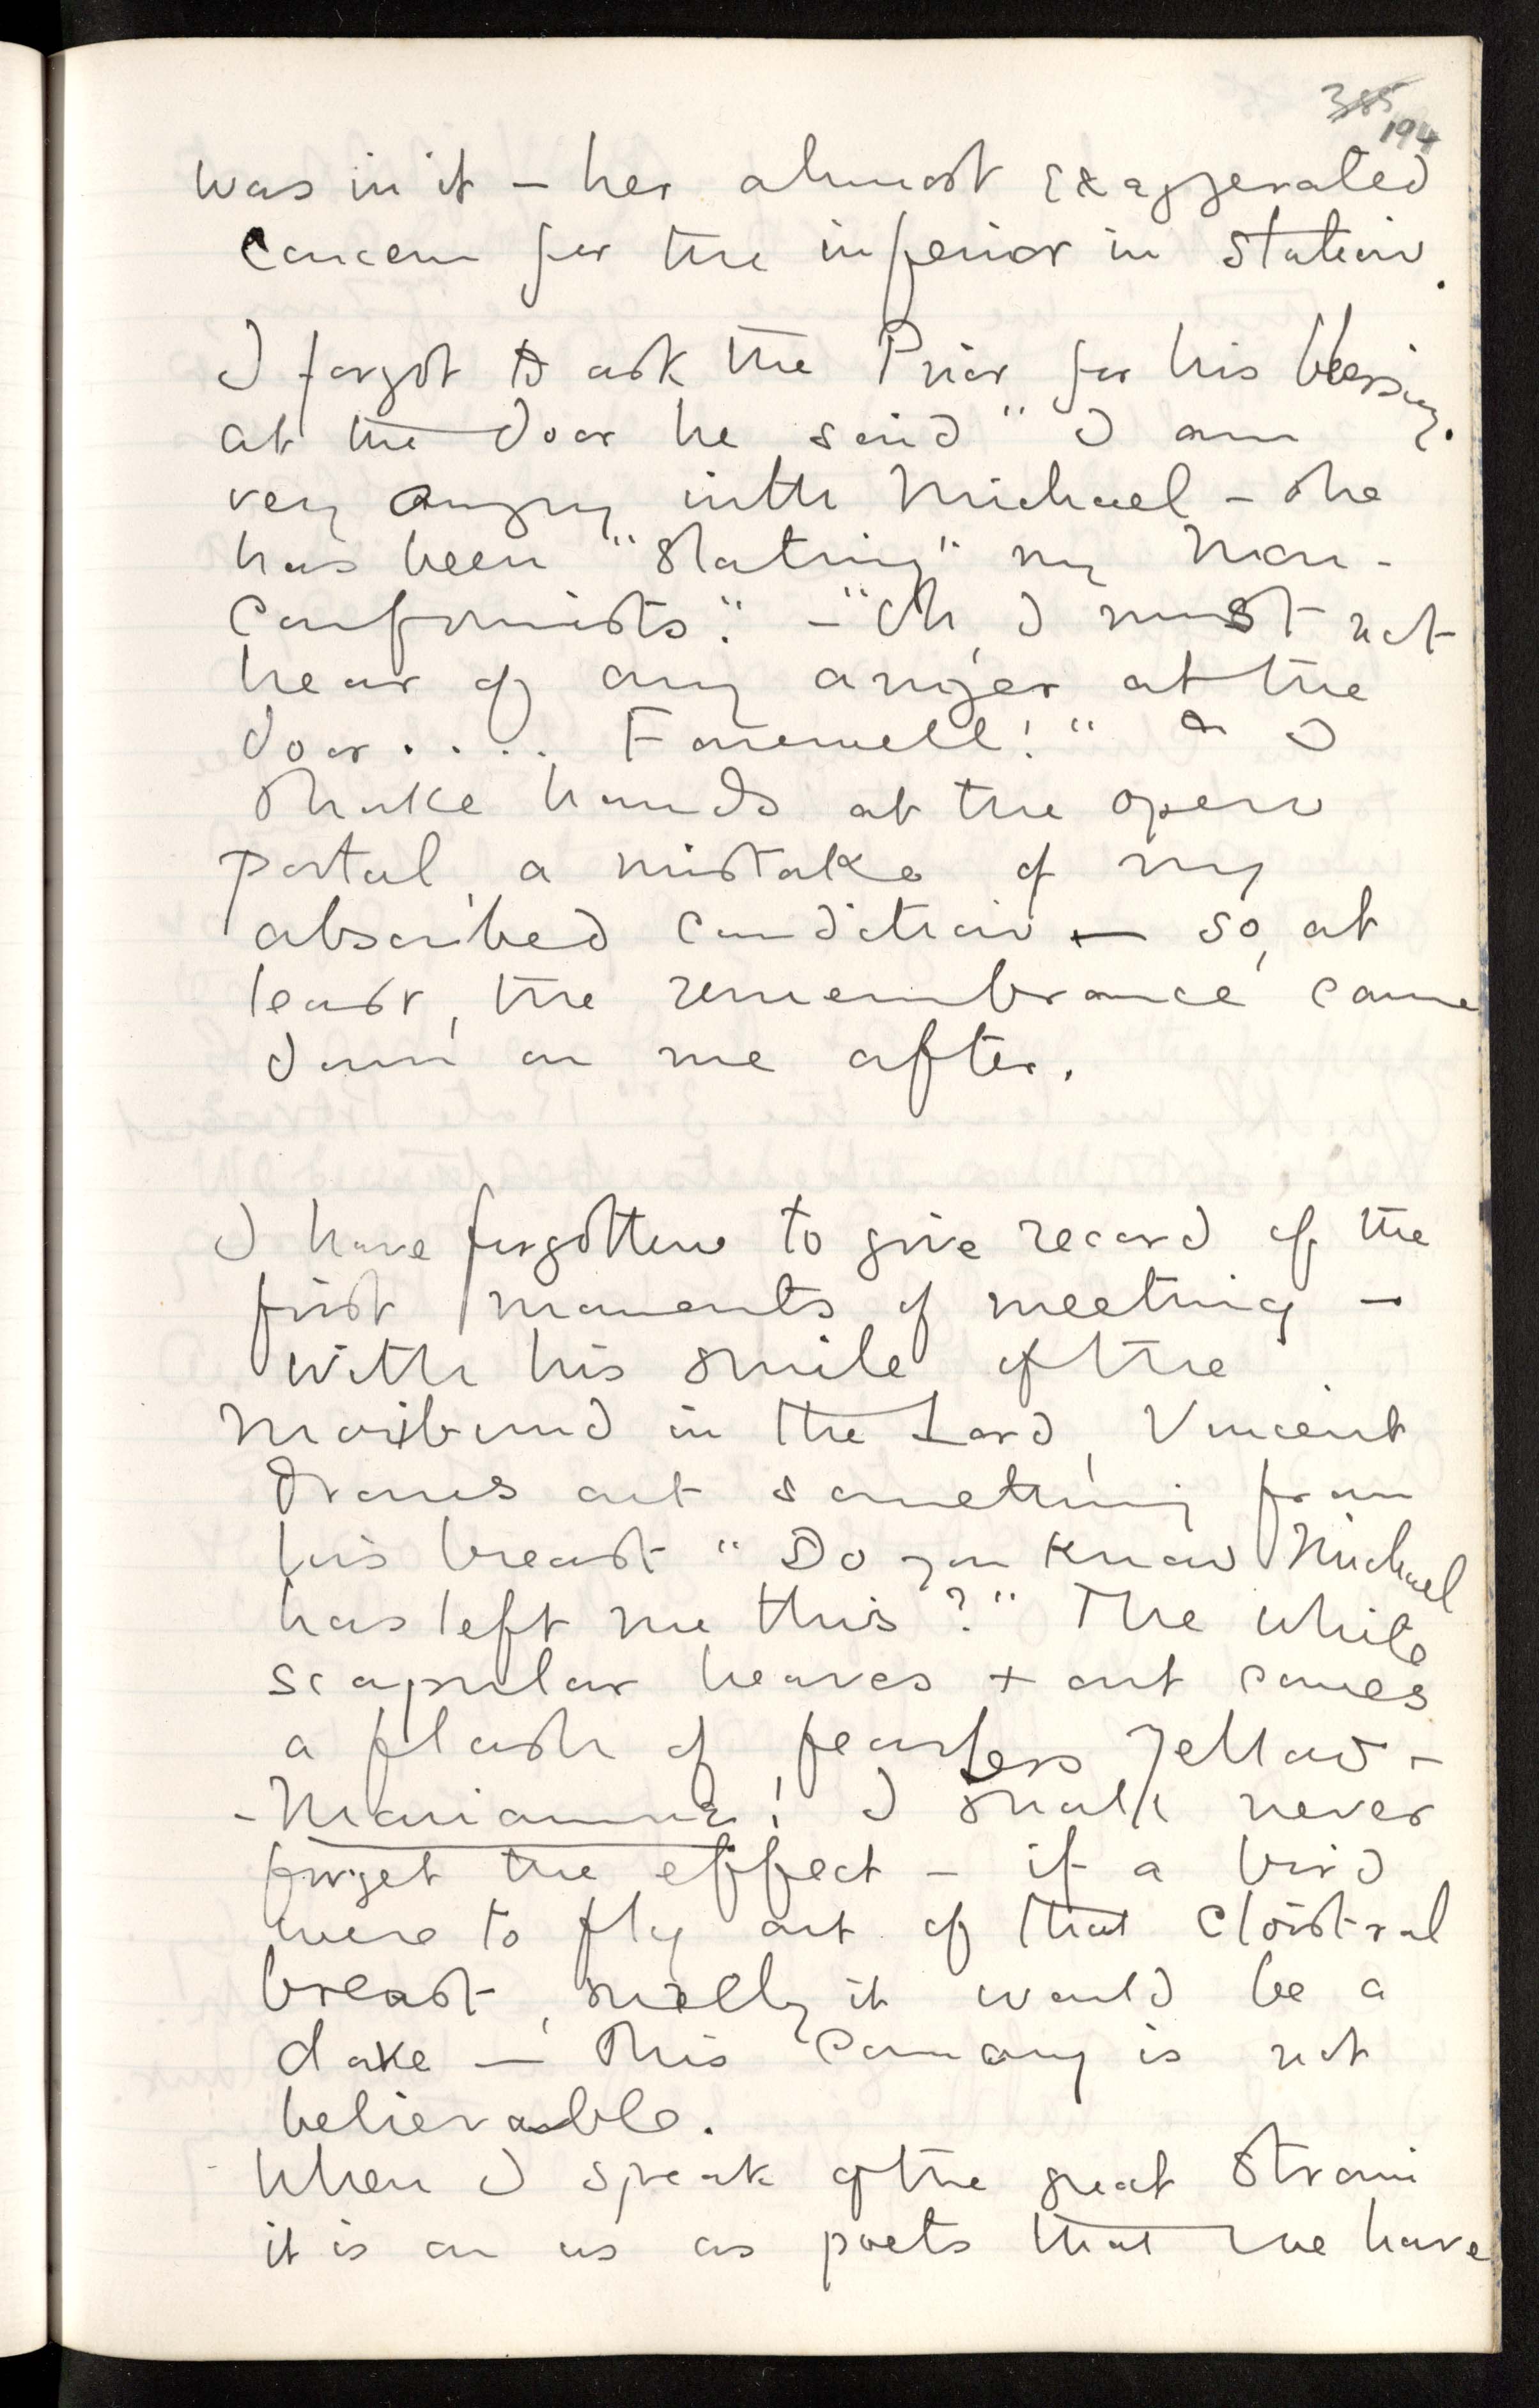 385
194
was in it – her almost exaggerated
concern for the inferior in station.
I forgot to ask the Prior for his blessing.
at the door he said " I am
very angry with Michael – she
has been "slating" my Non-
conformists". – "Oh, I must not
hear of any anger at the
door . . . . Farewell! " & I
shake hands at the open
portal, a mistake of my
absorbed condition — so, at
least, the remembrance came
down on me after.
I have forgotten to give record of the
first moments of meeting –
with his smile of the
moribund in the Lord, Vincent
draws out something from
his breast " Do you know Michael
has left me this ? " The white
scapular heaves + out comes
a flash of fearless yellow –
– Marianne! I shall never
forget the effect – if a bird
were to fly out of that cloistral
breast, surely it would be a
dove — this canary is not
believable.
When I speak of the great strain
it is on us as poets that we have